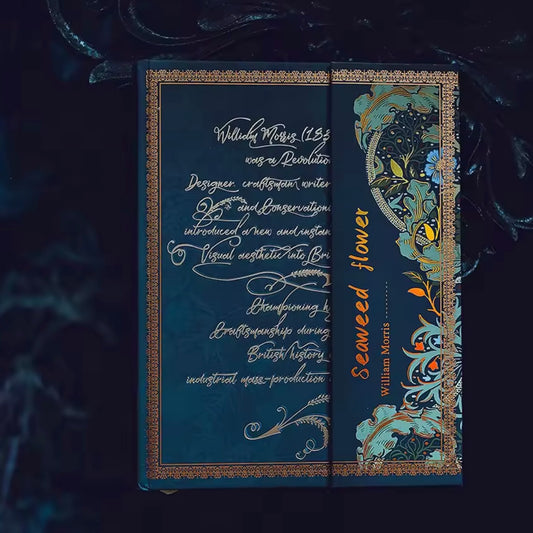 William Morris (183
was a Revolution
Designer, craftsman writer
and Conservationi
introduced a new and instan
Visual aesthetic into (Bri
Championing h
Craftsmanship during
British history
industrial mass-production
Seaweed flower
William Morris